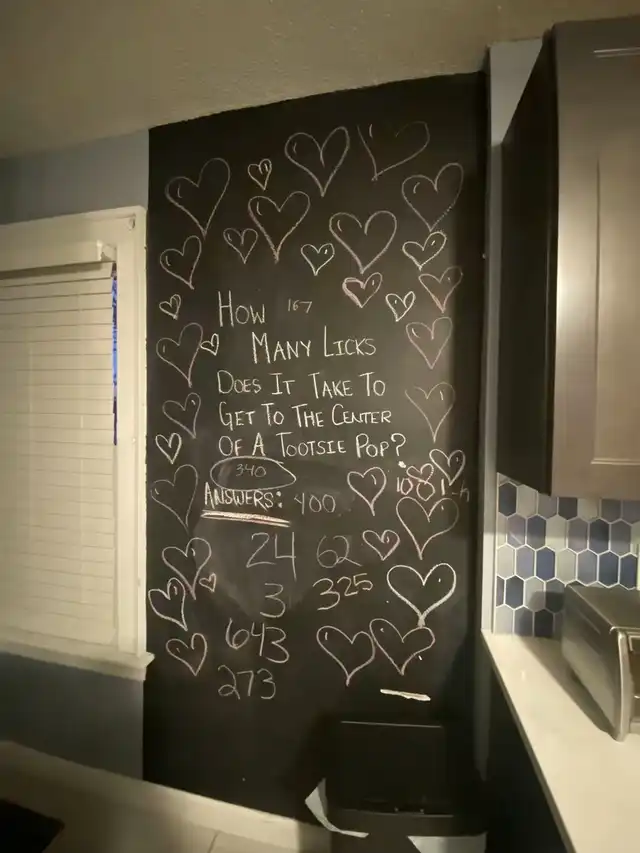 How 167
Many Licks
Does It Take To
Get To The Center
Of A Tootsie Pop?
340
Answers: 400
24 62
3 325
643
273